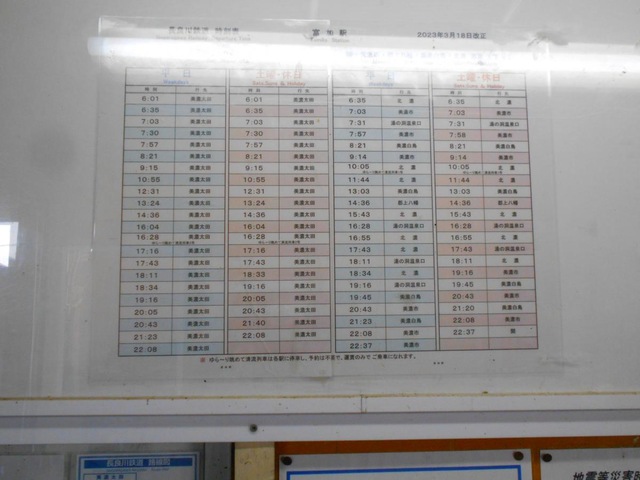 長良川鉄道 時刻表
富加駅
2023年3月18日改正
平日 土曜・休日 平日 土曜・休日
時刻 行先 時刻 行先 時刻 行先 時刻 行先
6:01 美濃太田 6:01 美濃太田 6:35 北濃 6:35 北濃
6:35 美濃太田 6:35 美濃太田 7:03 美濃市 7:03 美濃市
7:03 美濃太田 7:03 美濃太田 7:31 湯の洞温泉口 7:31 湯の洞温泉口
7:30 美濃太田 7:30 美濃太田 7:57 美濃市 7:58 美濃市
7:57 美濃太田 7:57 美濃太田 8:21 美濃白鳥 8:21 美濃白鳥
8:21 美濃太田 8:21 美濃太田 9:14 美濃市 9:14 美濃市
9:15 美濃太田 9:15 美濃太田 10:05 北濃 10:05 北濃
10:55 美濃太田 10:55 美濃太田 11:44 北濃 11:44 北濃
12:31 美濃太田 12:31 美濃太田 13:03 美濃白鳥 13:03 美濃白鳥
13:24 美濃太田 13:24 美濃太田 14:36 郡上八幡 14:36 郡上八幡
14:36 美濃太田 14:36 美濃太田 15:43 北濃 15:43 北濃
16:04 美濃太田 16:04 美濃太田 16:28 湯の洞温泉口 16:28 湯の洞温泉口
16:28 美濃太田 16:28 美濃太田 16:55 北濃 16:55 北濃
17:16 美濃太田 17:16 美濃太田 17:43 北濃 17:43 湯の洞温泉口
17:43 美濃太田 17:43 美濃太田 18:11 湯の洞温泉口 18:11 北濃
18:11 美濃太田 18:33 美濃太田 18:34 北濃 19:16 美濃市
18:34 美濃太田 19:16 美濃太田 19:16 湯の洞温泉口 19:45 美濃白鳥
19:16 美濃太田 20:05 美濃太田 19:45 美濃白鳥 20:43 美濃市
20:05 美濃太田 20:43 美濃太田 20:43 美濃市 21:20 美濃白鳥
20:43 美濃太田 21:40 美濃太田 21:23 美濃白鳥 22:08 美濃市
21:23 美濃太田 22:08 美濃太田 22:08 美濃市 22:37 関
22:08 美濃太田 22:37 美濃市
※ ゆら～り眺めて清流列車は各駅に停車し、予約は不要で、運賃のみでご乗車になれます。
長良川鉄道 路線図
地震等災害時